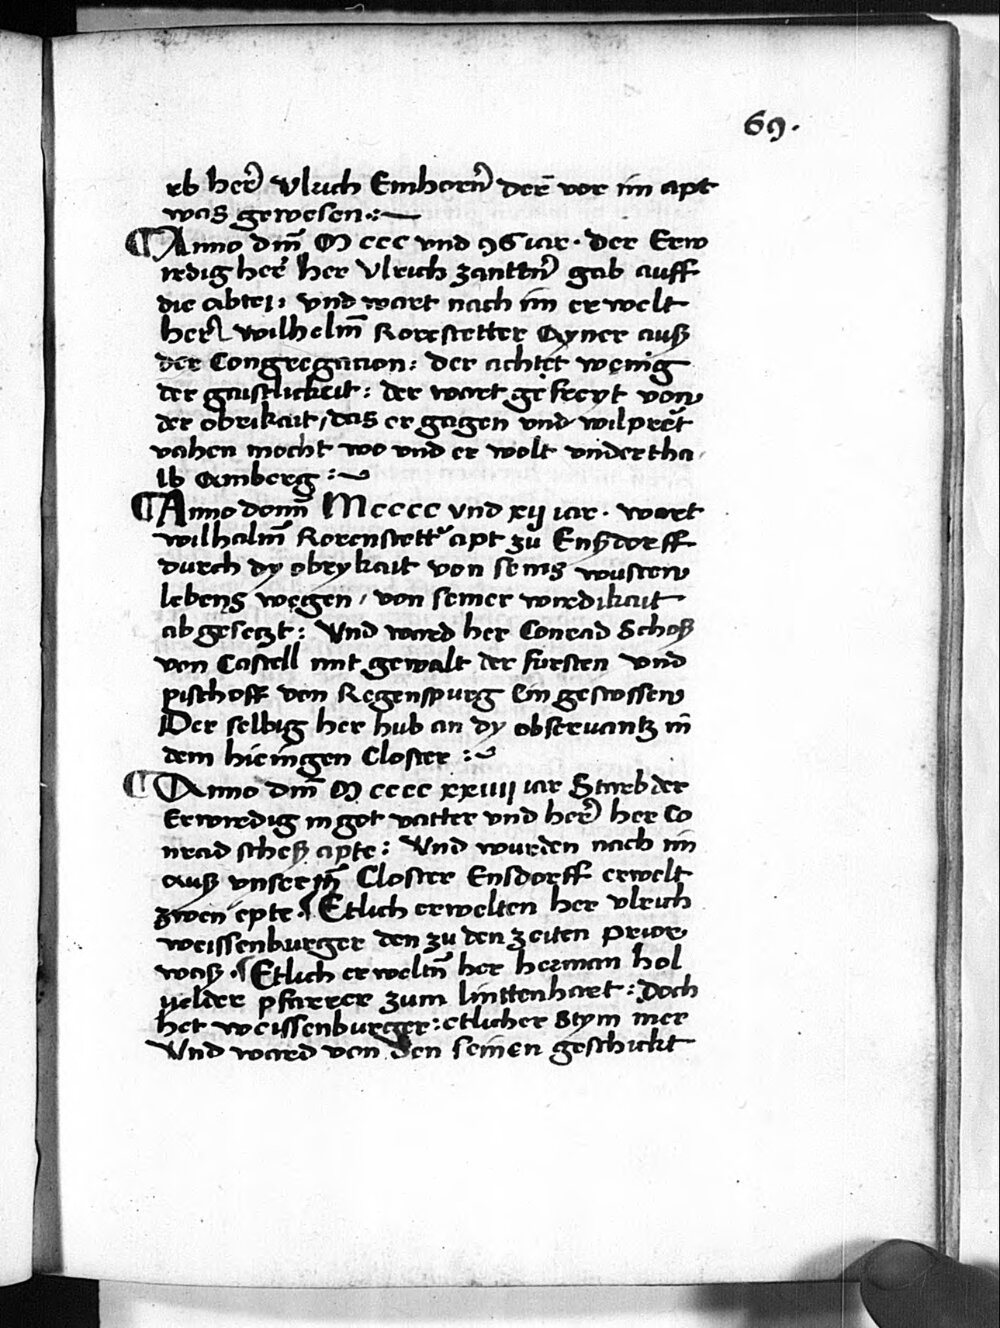 69.
rb her Vlrich Einhorn der vor im apt
was gewesen :~
Anno dm̄ M cccc vnd 96 iar. der Erw
irdig her her Vlrich zanttn̄ gab auff
die abtei: vnd wart nach im erwelt
her wilhelm̄ Rorestetter Ayner auß
der Congregacion: der achtet wenig
der gaistlickait: der wart gefreyt von
der obrikait, das er gagen vnd wilpret
vahen mocht wo vnd er wolt vndertha
lb Amberg :~
Anno domī Mcccc vnd xij iar. wart
wilhalm̄ Rorenstett' apt zu Ensdorff
durch dy obrykait von seins wusten
lebens wegen, von seiner wirdikait
abgeseczt: Vnd ward her Conrad Schoß
von Castell mit gewalt der fursten vnd
pischoff von Regenspurg eingestossen
Der selbig her hub an dy obseruantz in
dem hieingen Closter :~
Anno dm̄ M cccc xxiiii iar Starb der
Erwirdig in got vatter vnd her her Co
nrad scheß apte: Vnd wurden nach im
auß vnserm̄ Closter Ensdorff erwelt
zwen epte. Etlich erwelten her vlrich
weissenburger den zu den zeiten prior
waß. Etlich erweltn̄ her herman hol
uelder pfarrer zum linttenhart: Doch
het weissenburger: etlicher Stym mer
Vnd ward von den seinen geschickt